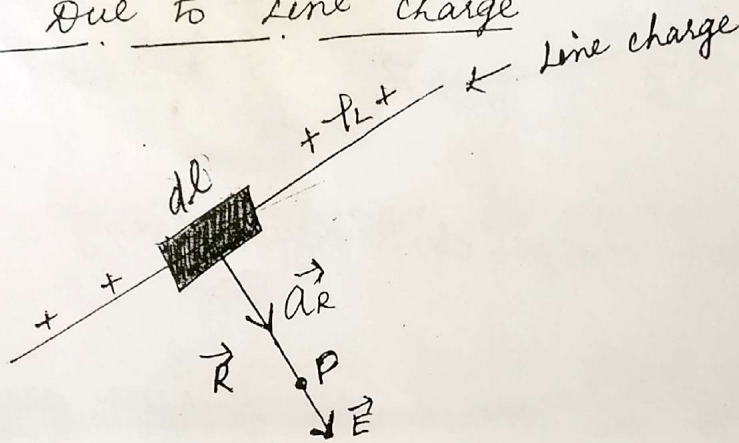 Due to Line Charge
Line charge
+ ρL +
dl
+ +
a⃗R
R⃗
P
E⃗